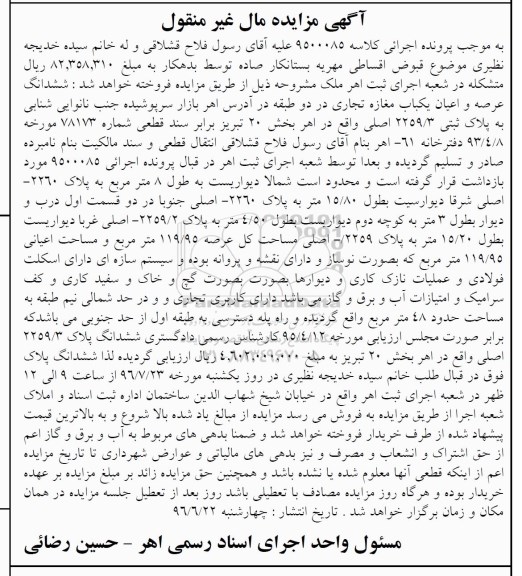 آگهی مزایده مال غیر منقول
به موجب پرونده اجرائی کلاسه ۹۵۰۰۰۸۵ علیه آقای رسول فلاح قشلاقی و له خانم سیده خدیجه
نظیری موضوع قبوض اقساطی مهریه بستانکار صاده توسط بدهکار به مبلغ ۸۲,۳۵۸,۳۱۰ ریال
متشکله در شعبه اجرای ثبت اهر ملک مشروحه ذیل از طریق مزایده فروخته خواهد شد : ششدانگ
عرصه و اعیان یکباب مغازه تجاری در دو طبقه در آدرس اهر بازار سرپوشیده جنب نانوایی شنابی
به پلاک ثبتی ۲۲۵۹/۳ اصلی واقع در اهر بخش ۲۰ تبریز برابر سند قطعی شماره ۷۸۱۷۳ مورخه
۹۳/۴/۸ دفترخانه ۶۱- اهر بنام آقای رسول فلاح قشلاقی انتقال قطعی و سند مالکیت بنام نامبرده
صادر و تسلیم گردیده و بعدا توسط شعبه اجرای ثبت اهر در قبال پرونده اجرائی ۹۵۰۰۰۸۵ مورد
بازداشت قرار گرفته است و محدود است شمالا دیواریست به طول ۸ متر مربع به پلاک ۲۲۶۰-
اصلی شرقا دیوارسیت بطول ۱۵/۸۰ متر به پلاک ۲۲۶۰- اصلی جنوبا در دو قسمت اول درب و
دیوار بطول ۳ متر به کوچه دوم دیواریست بطول ۴/۵۰ متر به پلاک ۲۲۵۹/۲- اصلی غربا دیواریست
بطول ۱۵/۲۰ متر به پلاک ۲۲۵۹ اصلی مساحت کل عرصه ۱۱۹/۹۵ متر مربع و مساحت اعیانی
۱۱۹/۹۵ متر مربع که بصورت نوساز و دارای نقشه و پروانه بوده و سیستم سازه ای دارای اسکلت
فولادی و عملیات نازک کاری و دیوارها بصورت بصورت گچ و خاک و سفید کاری و کف
سرامیک و امتیازات آب و برق و گاز می باشد دارای کاربری تجاری و و در حد شمالی نیم طبقه به
مساحت حدود ۴۸ متر مربع واقع گردیده و راه پله دسترسی به طبقه اول از حد جنوبی می باشدکه
برابر صورت مجلس ارزیابی مورخه ۹۵/۴/۱۲ کارشناس رسمی دادگستری ششدانگ پلاک ۲۲۵۹/۳
اصلی واقع در اهر بخش ۲۰ تبریز به مبلغ ریال ارزیابی گردیده لذا ششدانگ پلاک
فوق در قبال طلب خانم سیده خدیجه نظیری در روز یکشنبه مورخه ۹۶/۷/۲۳ از ساعت ۹ الی ۱۲
ظهر در شعبه اجرای ثبت اهر واقع در خیابان شیخ شهاب الدین ساختمان اداره ثبت اسناد و املاک
شعبه اجرا از طریق مزایده به فروش می رسد مزایده از مبالغ یاد شده بالا شروع و به بالاترین قیمت
پیشنهاد شده از طرف خریدار فروخته خواهد شد و ضمنا بدهی های مربوط به آب و برق و گاز اعم
از حق اشتراک و انشعاب و مصرف و نیز بدهی های مالیاتی و عوارض شهرداری تا تاریخ مزایده
اعم از اینکه قطعی آنها معلوم شده یا نشده باشد و همچنین حق مزایده زائد بر مبلغ مزایده بر عهده
خریدار بوده و هرگاه روز مزایده مصادف با تعطیلی باشد روز بعد از تعطیل جلسه مزایده در همان
مکان و زمان برگزار خواهد شد . تاریخ انتشار : چهارشنبه ۹۶/۶/۲۲
مسئول واحد اجرای اسناد رسمی اهر - حسین رضائی